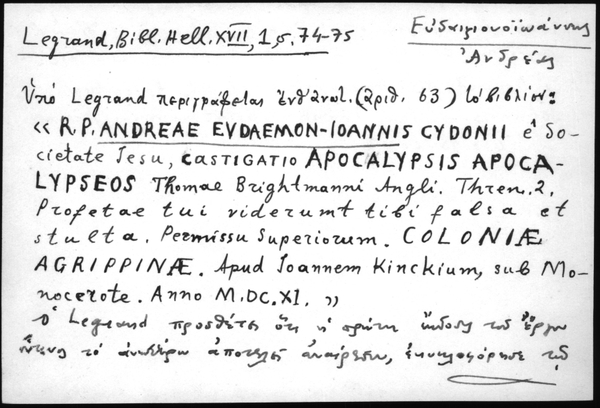 Legrand, Bibl. Hell. XVII, 1, σ. 74-75
Εὐδαιμονοϊωάννης
Ἀνδρέας
Ὑπό Legrand περιγράφεται ἐνθ' ἀνωτ. (ἀριθ. 63) τό βιβλίον:
« R.P. ANDREAE EVDAEMON-IOANNIS CYDONII è So-
cietate Iesu, CASTIGATIO APOCALYPSIS APOCA-
LYPSEOS Thomae Brightmanni Angli. Thren. 2.
Profetae tui viderumt tibi falsa et
stulta. Permissu Superiorum. COLONIÆ
AGRIPPINÆ. Apud Ioannem Kinckium, sub Mo-
nocerote. Anno M.DC.XI. »
Ὁ Legrand προσθέτει ὅτι ἡ πρώτη ἔκδοσις τοῦ ἔργου
οὗτινος τό ἀνωτέρω ἀποτελεῖ ἀναίρεσιν, ἐκυκλοφόρησε τῷ